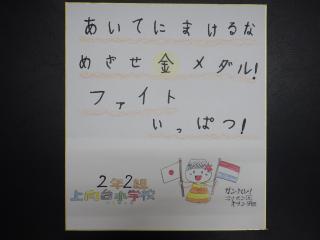 あいてに まけるな
めざせ 金 メダル!
ファイト
いっぱつ!
2年2組
上向台小学校
ガンバレ!
ニッポン
オランダ